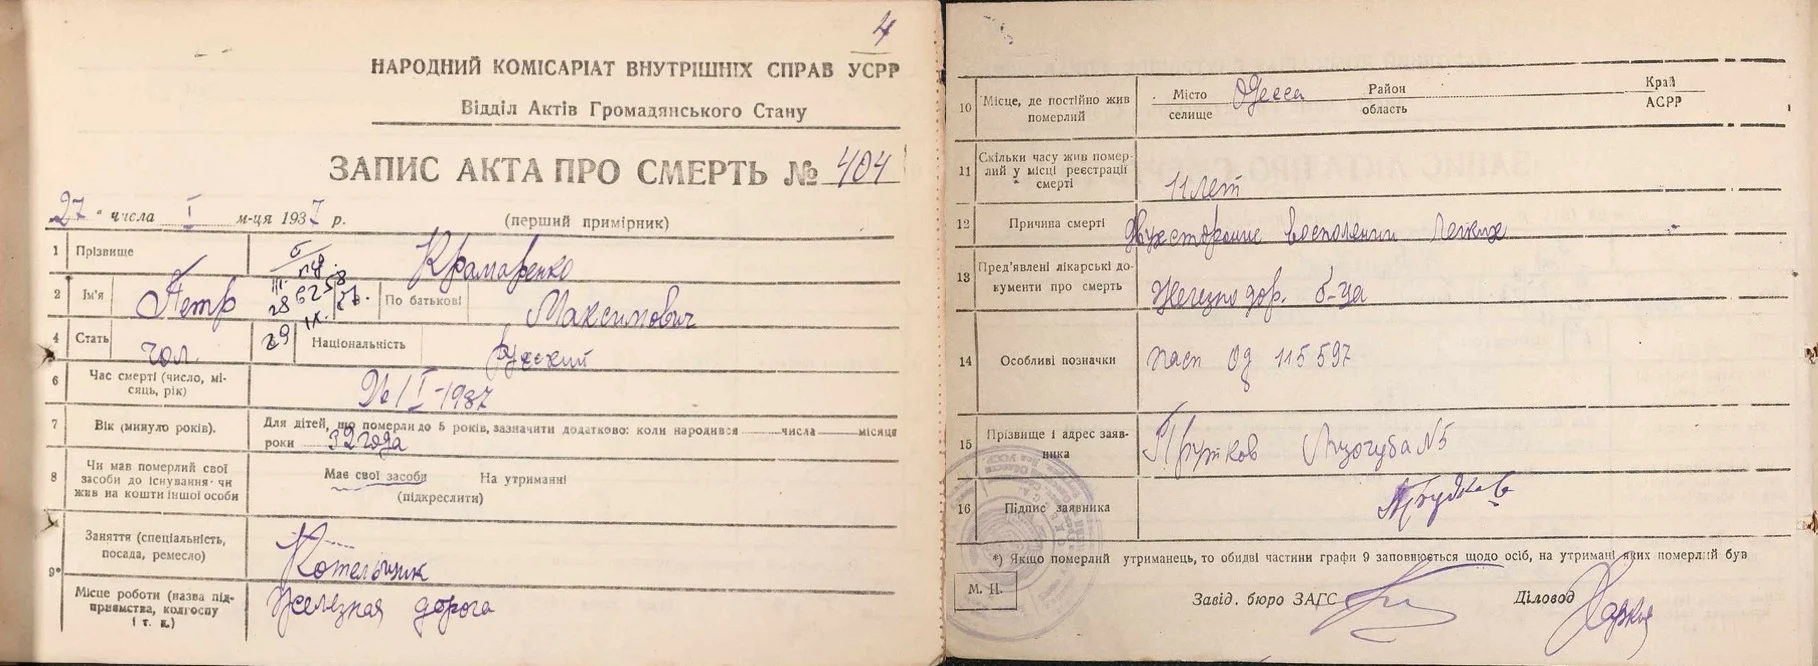 4
НАРОДНИЙ КОМІСАРІАТ ВНУТРІШНІХ СПРАВ УСРР
Відділ Актів Громадянського Стану
ЗАПИС АКТА ПРО СМЕРТЬ № 404
27 " числа I м-ця 1937 р. (перший примірник)
1 Прізвище Крамаренко
2 Ім'я Петр По батькові Максимович
4 Стать чол. 29 Національність русский
6 Час смерти (число, місяць, рік) 26/I-1937
7 Вік (минуло років). Для дітей, що померли до 5 років, зазначити додатково: коли народився числа місяця
роки 32 года
8 Чи мав померлий свої засоби до існування чи жив на кошти іншої особи Має свої засоби На утриманні
(підкреслити)
9* Заняття (спеціальність, посада, ремесло) Котельщик
Місце роботи (назва підприємства, колгоспу і т. п.) Железная дорога
10 Місце, де постійно жив померлий Місто селище Одесса Район область Край АСРР
11 Скільки часу жив померлий у місці реєстрації смерті 11 лет
12 Причина смерті Двухсторонне восполении легких
13 Пред'явлені лікарські документи про смерть Железнодор. б-ца
14 Особливі позначки пасп Од 115597
15 Прізвище і адрес заявника Прутков Лизогуба N5
16 Підпис заявника
*) Якщо померлий утриманець, то обидві частини графи 9 заповнюється щодо осіб, на утримані яких померлий був
М. П. Завід. бюро ЗАГС Діловод